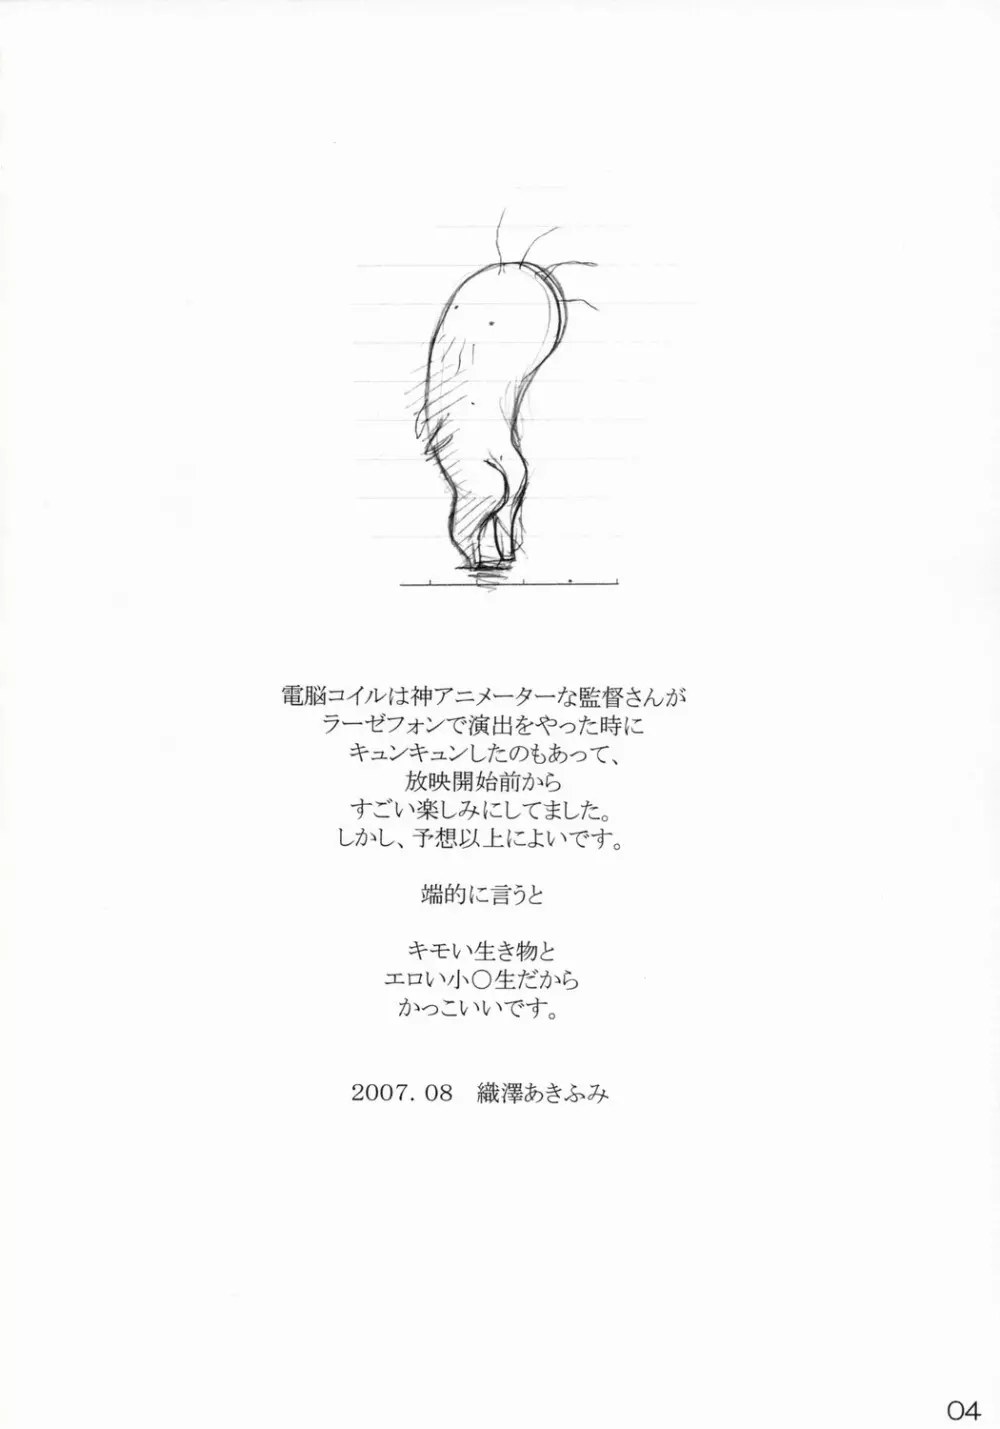 電脳コイルは神アニメーターな監督さんが
ラーゼフォンで演出をやった時に
キュンキュンしたのもあって、
放映開始前から
すごい楽しみにしてました。
しかし、予想以上によいです。
端的に言うと
キモい生き物と
エロい小〇生だから
かっこいいです。
2007.08　織澤あきふみ
04